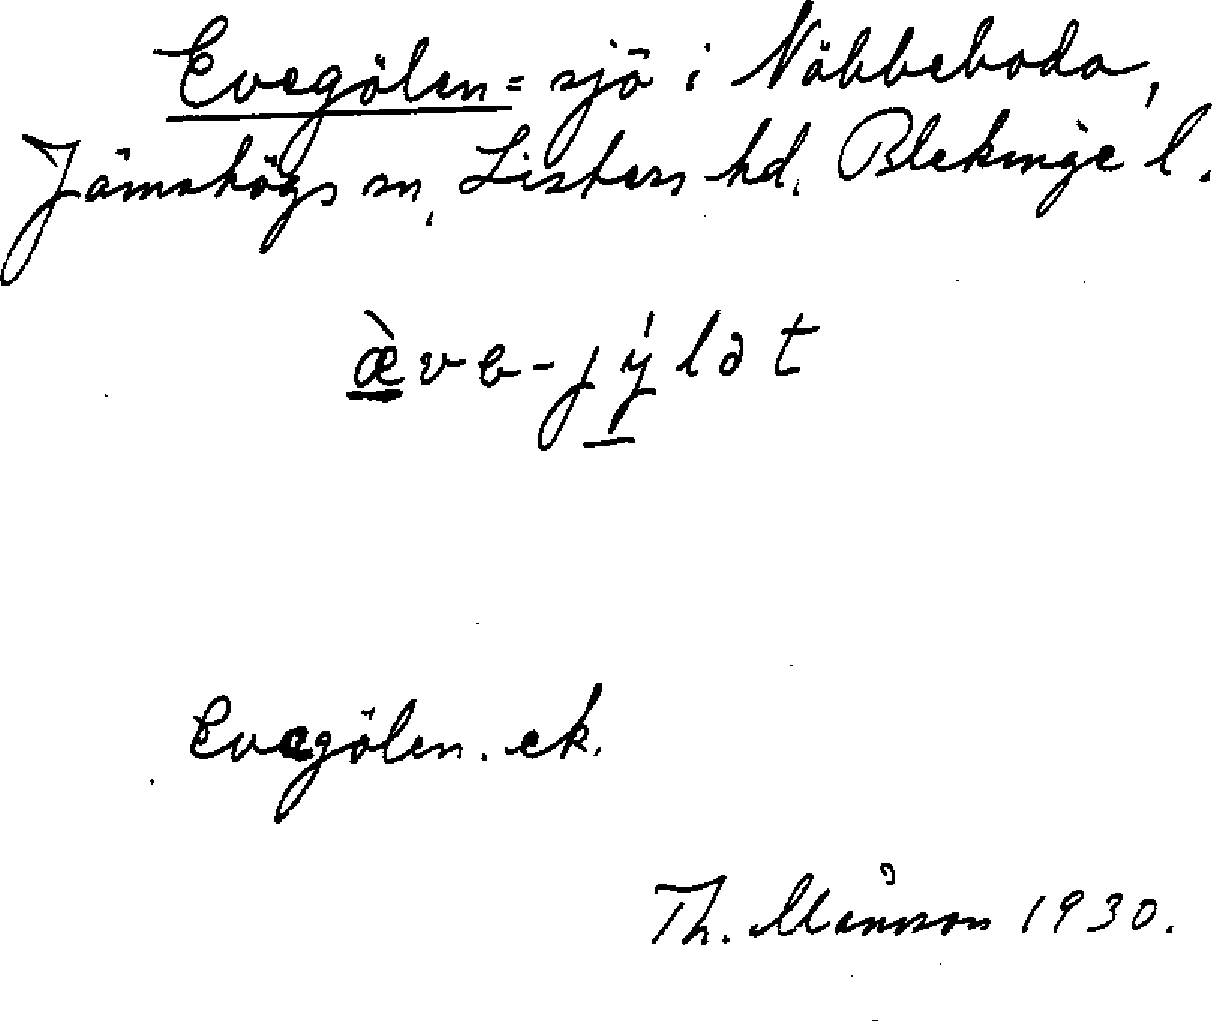 Evegölen = sjö i Näbbeboda,
Jämshögs sn, Listers hd. Blekinge l.
æ̀ve-jýlət
Evegölen. ek.
Th. Månsson 1930.